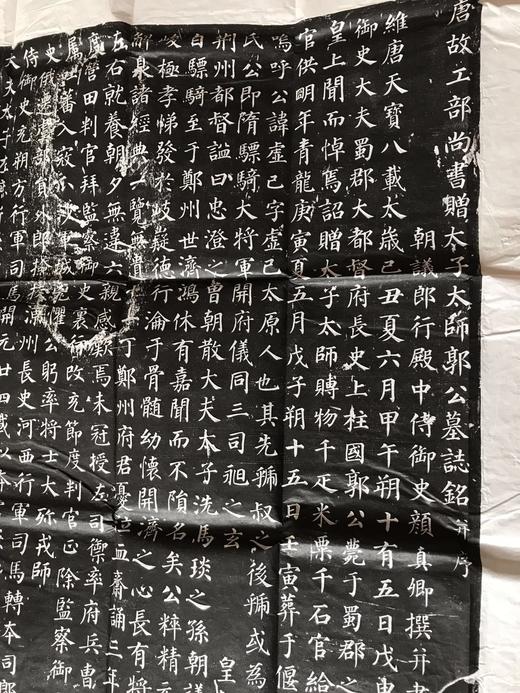 唐故工部尚書贈太子太師郭公墓誌銘并序
朝議郎行殿中侍御史顏真卿撰并書
維唐天寶八載太歲己丑夏六月甲午朔十有五日戊申
御史大夫蜀郡大都督府長史上柱國郭公薨于蜀郡之
皇上聞而悼焉詔贈太子太師賻物千疋米粟千石官給
官供明年青龍庚寅夏五月戊子朔十五日壬寅葬于偃
嗚呼公諱虛己字虛己太原人也其先虢叔之後虢或為
氏公即隋驃騎大將軍開府儀同三司昶之玄
荊州都督謚曰忠澄之曾朝散大夫太子洗馬琰之孫朝議
自驃騎至于鄭州世濟鴻休有嘉聞而不隕名矣公粹精元
峻極孝悌發於岐嶷德行淪于骨髓幼懷開濟之心長有將
解泉諸經典一覽無遺丁鄭州府君憂泣血齋誦三年
左右就養朝夕無違六親感歎焉未冠授左司禦率府兵曹
廣營田判官拜監察御史裏行改充節度判官正除監察御
屬吐蕃入寇我軍城懼公躬率將士大殄戎師
史俄遷部員外郎檢涼州長史河西行軍司馬轉本司郎
侍御史充朔方行軍司馬開元廿四載以本
大夫太子左